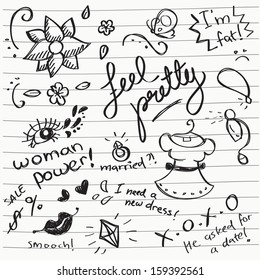 I'm
fat!
feel
pretty
woman
power!
married?!
SALE
%
I need a
new dress!
x.o.x.o
He asked for
a date!
smooch!
shutterstock.com · 159392561